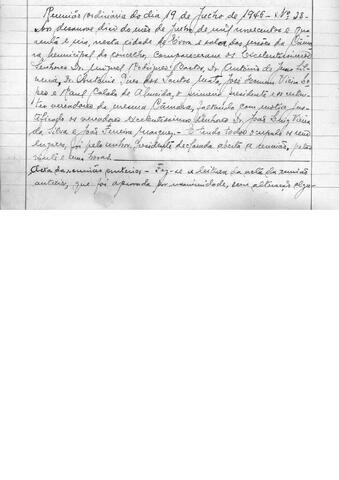 Reunião ordinária do dia 19 de Julho de 1946 - Nº 28 -
Aos dezanove dias do mês de Julho de mil novecentos e qua-
renta e seis, nesta cidade de Évora e salas das sessões da Câma-
ra Municipal do concelho, compareceram os Excelentissimos
Senhores Dr. Miguel Rodrigues Bastos, Dr. António de
Dr. António dos Santos José Vieira Lo-
pes e Raul Calado de Almeida, o primeiro presidente e os res-
tantes vereadores da mesma Câmara, faltando com motivo jus-
tificado os vereadores excelentissimos Senhores Dr. João Luiz Vieira
da Silva e João Pereira - E tendo todos ocupado os seus
lugares, foi pelo senhor Presidente declarada aberta a reunião, pelas
e uma horas.
Acta da reunião anterior - Fez-se a leitura da acta da reunião
anterior, que foi aprovada por unanimidade, sem alteração algu-